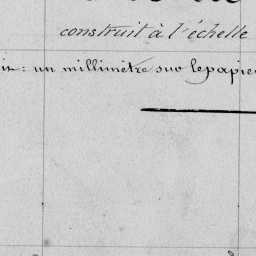 construit à l'échelle
un millimètre sur le papier